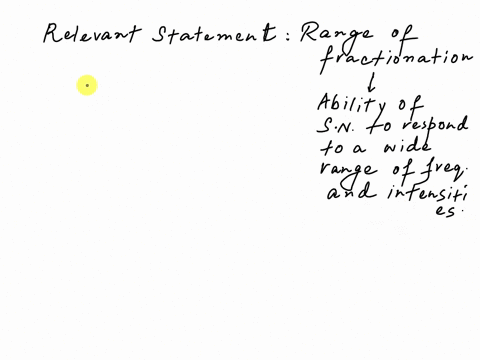 Relevant Statement : Range of
fractionation
↓
Ability of
S.N. to respond
to a wide
range of freq.
and intensiti
es.